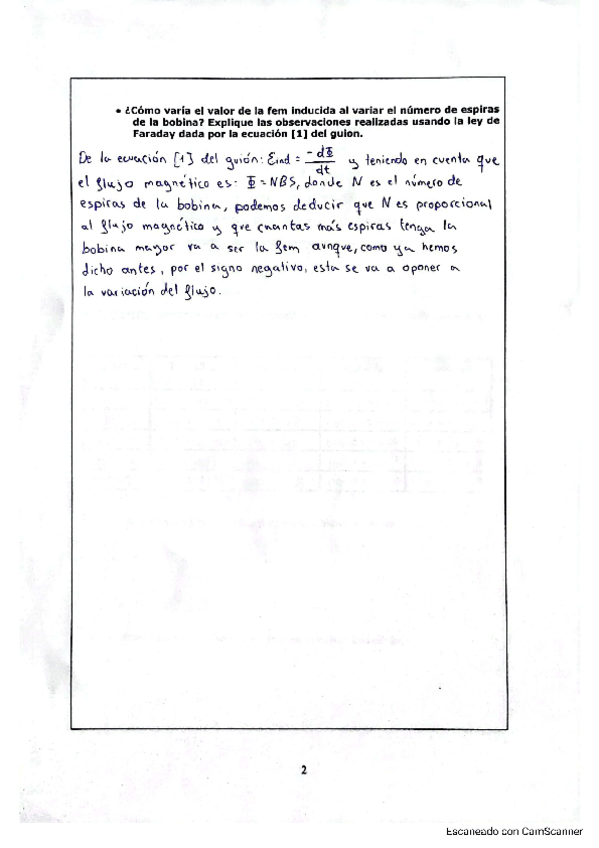 • ¿Cómo varía el valor de la fem inducida al variar el número de espiras
de la bobina? Explique las observaciones realizadas usando la ley de
Faraday dada por la ecuación [1] del guion.
De la ecuación [1] del guión: Eind = -dΦ/dt y teniendo en cuenta que
el flujo magnético es: Φ = NBS, donde N es el número de
espiras de la bobina, podemos deducir que N es proporcional
al flujo magnético y que cuantas más espiras tenga la
bobina mayor va a ser la fem aunque, como ya hemos
dicho antes, por el signo negativo, esta se va a oponer a
la variación del flujo.
2
Escaneado con CamScanner